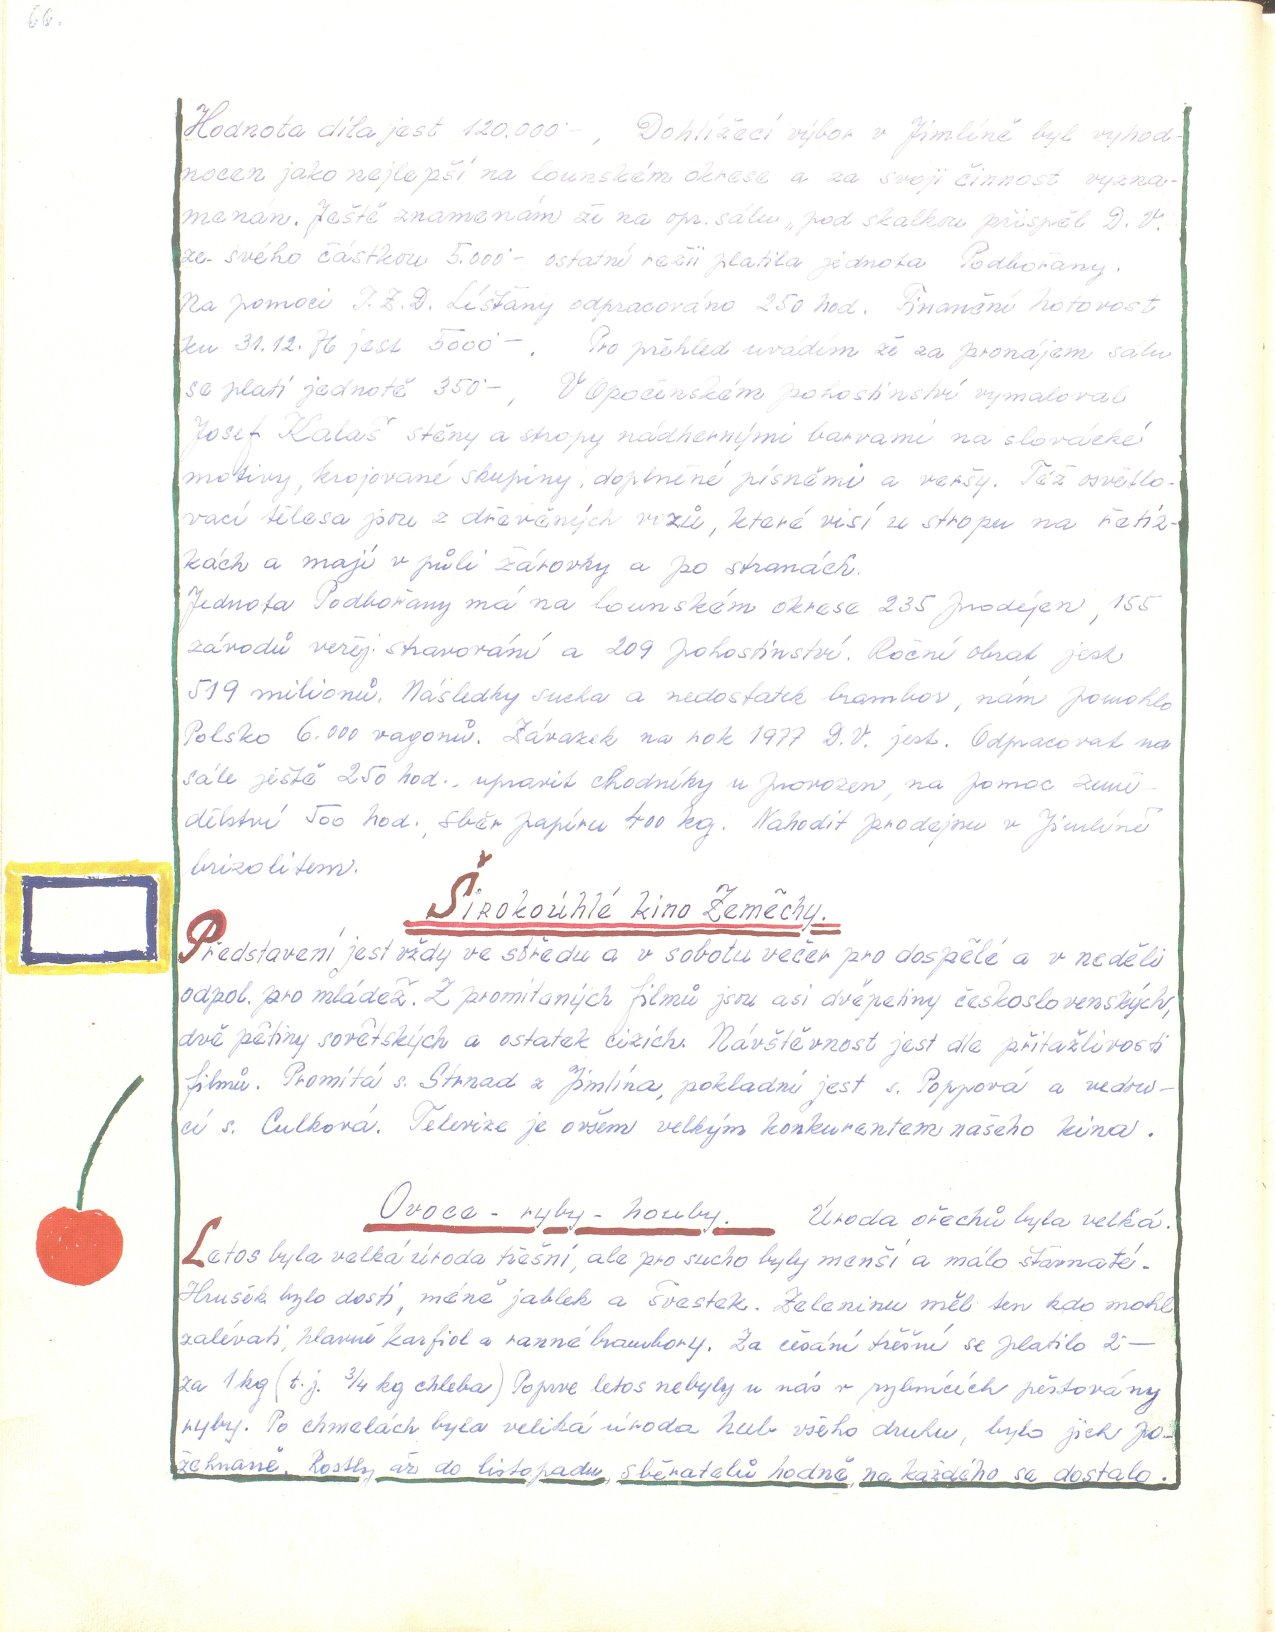 66.
Hodnota díla jest 120.000·–, Dohlížecí výbor v Jimlíně byl vyhod-
nocen jako nejlepší na lounském okrese a za svoji činnost vyzna-
menán. Ještě znamenám že na opr. sálu „pod skalkou přispěl D.V.
ze svého částkou 5.000·– ostatní režii platila jednota Podbořany.
Na pomoci J.Z.D. Líšťany odpracováno 250 hod. Finanční hotovost
ku 31.12.76 jest 5000·–. Pro přehled uvádím že za pronájem sálu
se platí jednotě 350·–, V Opočenském pohostinství vymaloval
Josef Kalaš stěny a stropy nádhernými barvami na slovácké
motivy, krojované skupiny, doplněné písněmi a verši. Též osvětlo-
vací tělesa jsou z dřevěných vozů, které visí u stropu na řetíz-
kách a mají v půli žárovky a po stranách.
Jednota Podbořany má na lounském okrese 235 prodejen, 155
závodů veřej. stravování a 209 pohostinství. Roční obrat jest
519 milionů. Následky sucha a nedostatek brambor, nám pomohlo
Polsko 6.000 vagonů. Závazek na rok 1977 D.V. jest. Odpracovat na
sále ještě 250 hod., upravit chodníky u provozen, na pomoc země-
dělství 500 hod., sběr papíru 400 kg. Nahodit prodejnu v Jimlíně
brizolitem.
Širokoúhlé kino Zeměchy.
Představení jest vždy ve středu a v sobotu večer pro dospělé a v neděli
odpol. pro mládež. Z promítaných filmů jsou asi dvěpetiny československých,
dvě pětiny sovětských a ostatek cizích. Návštěvnost jest dle přitažlivosti
filmů. Promítá s. Strnad z Jimlína, pokladní jest s. Poppová a vedou-
cí s. Culková. Televize je ovšem velkým konkurentem našeho kina.
Ovoce - ryby - houby. Úroda ořechů byla velká.
Letos byla velká úroda třešní, ale pro sucho byly menší a málo šťavnaté.
Hrušek bylo dosti, méně jablek a švestek. Zeleninu měl ten kdo mohl
zalévati, hlavně karfiol a ranné brambory. Za česání třešní se platilo 2·—
za 1 kg (t.j. 3/4 kg chleba) Poprve letos nebyly u nás v rybnících pěstovány
ryby. Po chmelách byla veliká úroda hub všeho druhu, bylo jich po-
žehnaně. Rostly až do listopadu, sběratelů hodně, na každého se dostalo.